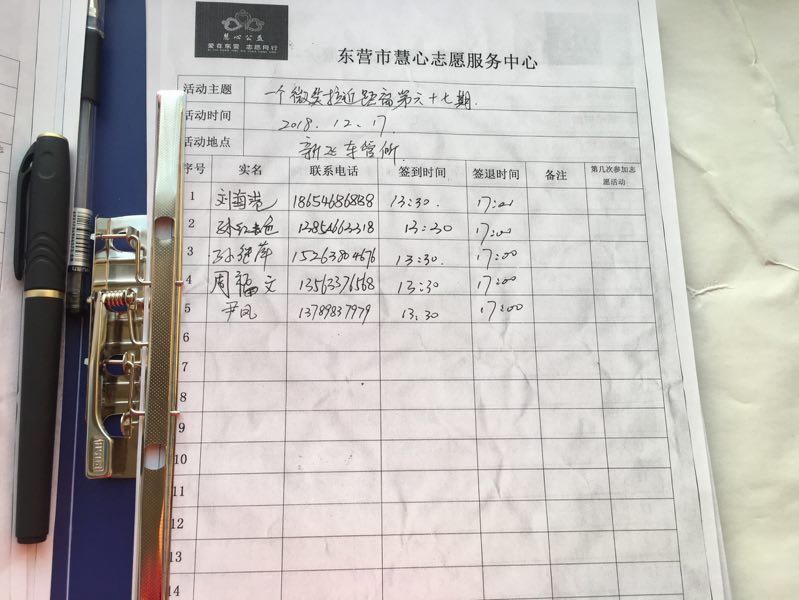 慧心公益
爱在东营 志愿同行
东营市慧心志愿服务中心
活动主题 一个微笑拉近距离第六十七期.
活动时间 2018.12.17.
活动地点 新飞车管所.
序号 实名 联系电话 签到时间 签退时间 备注 第几次参加志愿活动
1 刘海港 18654686888 13:30. 17:00
2 13:30 17:00
3 孙继萍 15263804676 13:30. 17:00
4 周福文 13563376568 13:30 17:00
5 尹凤 13789837979 13:30 17:00
6
7
8
9
10
11
12
13
14